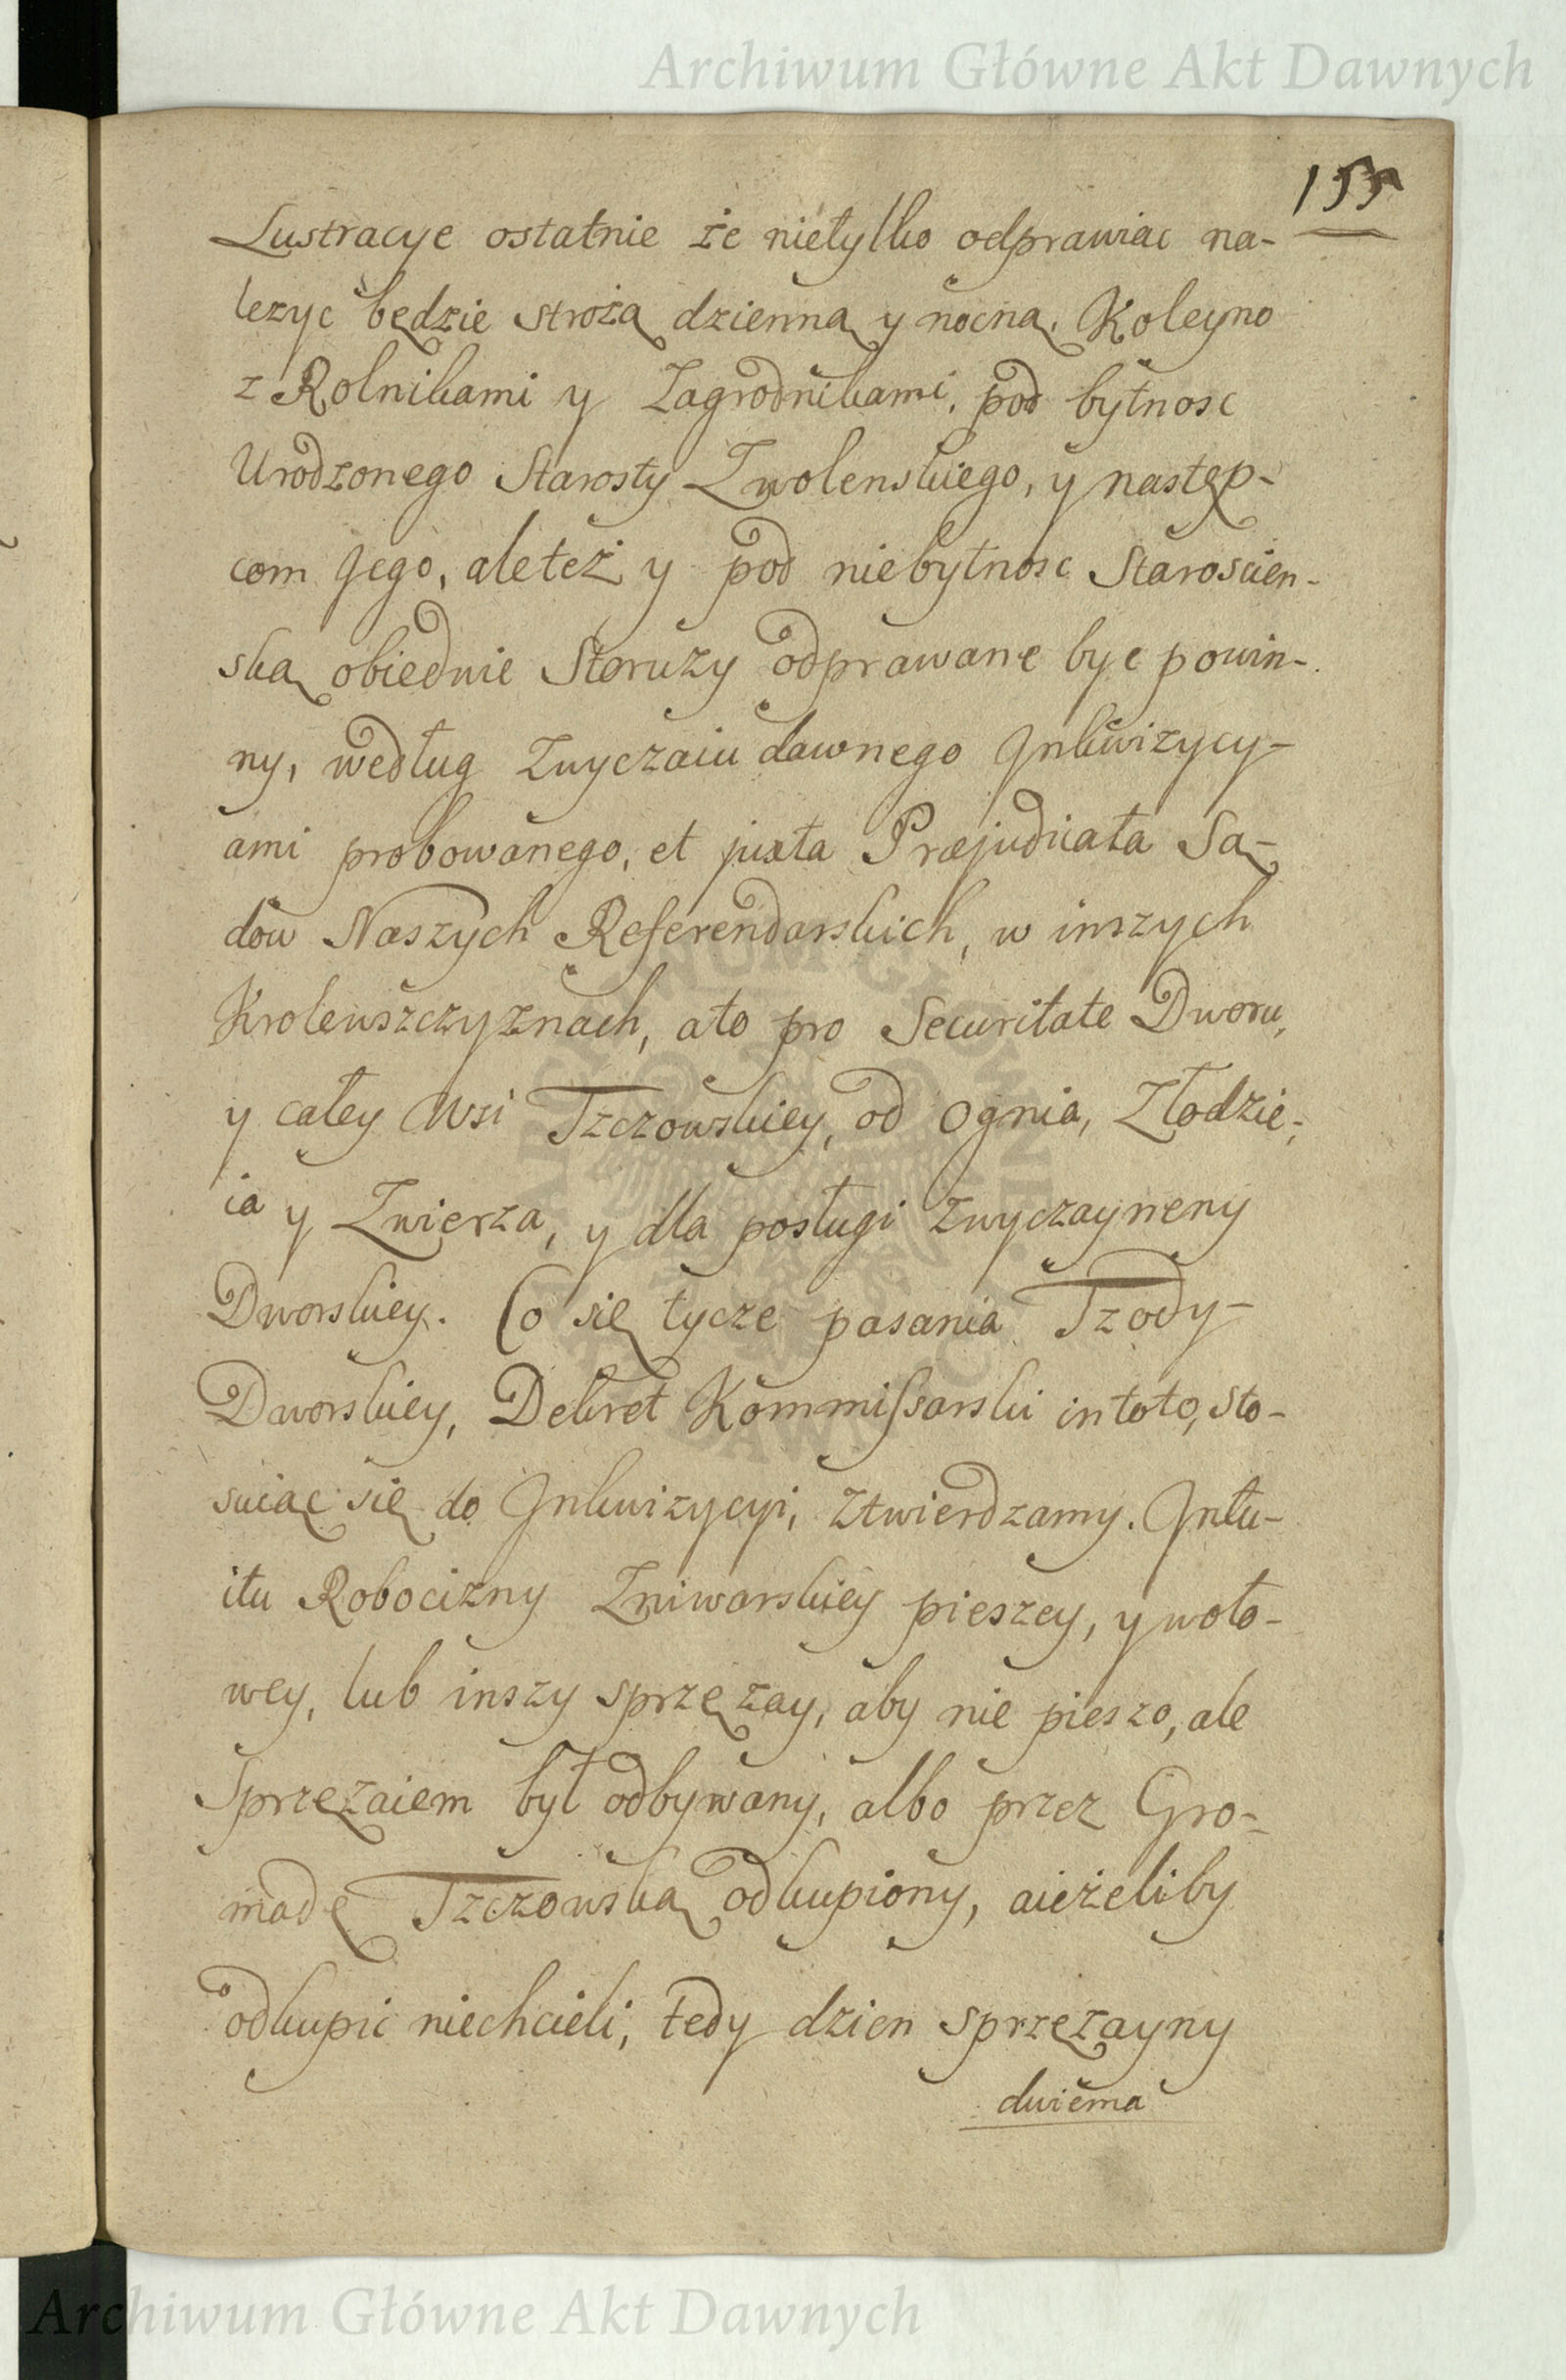 Archiwum Główne Akt Dawnych
155
Lustracye ostatnie że nietylko odprawiac na-
lezyc będzie strożą dzienną y nocną. Koleyno
z Rolnikami y Zagrodnikami, pod bytnosc
Urodzonego Starosty Zwolenskiego, y następ-
com Jego, aleteż y pod niebytnosc Staroscien-
ską obiedwie Storuży odprawane byc powin-
ny, według Zwyczaiu dawnego Inkwizycy-
ami probowanego, et juxta Præjudicata Są-
dow Naszych Referendarskich, w inszych
Krolewszczyznach, ato pro Securitate Dworu,
y całey Wsi Tzczowskiey, od Ognia, Złodzie-
ia y Zwierza, y dla posługi zwyczayneny
Dworskiey. Co się tycze pasania Trzody-
Dworskiey, Dekret Kommissarski in toto, sto-
suiąc się do Inkwizycyi, ztwierdzamy. Intu-
itu Robocizny Zniwarskiey pieszey, y woło-
wey, lub inszy sprzężay, aby nie pieszo, ale
Sprzężaiem był odbywany, albo przez Gro-
madę Tzczowską odkupiony, aieżeliby
odkupic niechcieli, tedy dzien sprzężayny
dwiema
Archiwum Główne Akt Dawnych